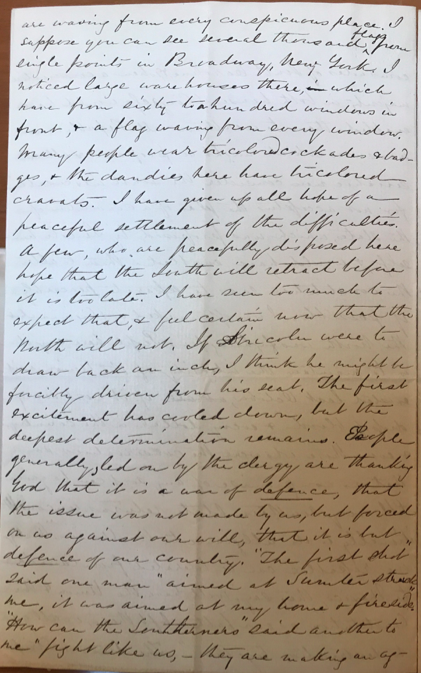 are waving from every conspicuous place. I
suppose you can see several thousand flags from
single points in Broadway, New York. I
noticed large warehouses there, in which
have from sixty to a hundred windows in
front, & a flag waving from every window.
Many people wear tricolored cockades & bad-
ges, & the dandies here have tricolored
cravats. I have given up all hope of a
peaceful settlement of the difficulties.
A few, who are peacefully disposed here
hope that the South will retract before
it is too late. I have seen too much to
expect that, & feel certain now that the
North will not. If Lincoln were to
draw back an inch, I think he might be
forcibly driven from his seat. The first
excitement has cooled down, but the
deepest determination remains. People
generally, led on by the clergy, are thanking
God that it is a war of defence, that
the issue was not made by us, but forced
on us against our will, that it is but
defence of our country. "The first shot"
said one man "aimed at Sumter struck
me, it was aimed at my home & fireside."
"How can the Southerners" said another to
me "fight like us, – they are making an ag-